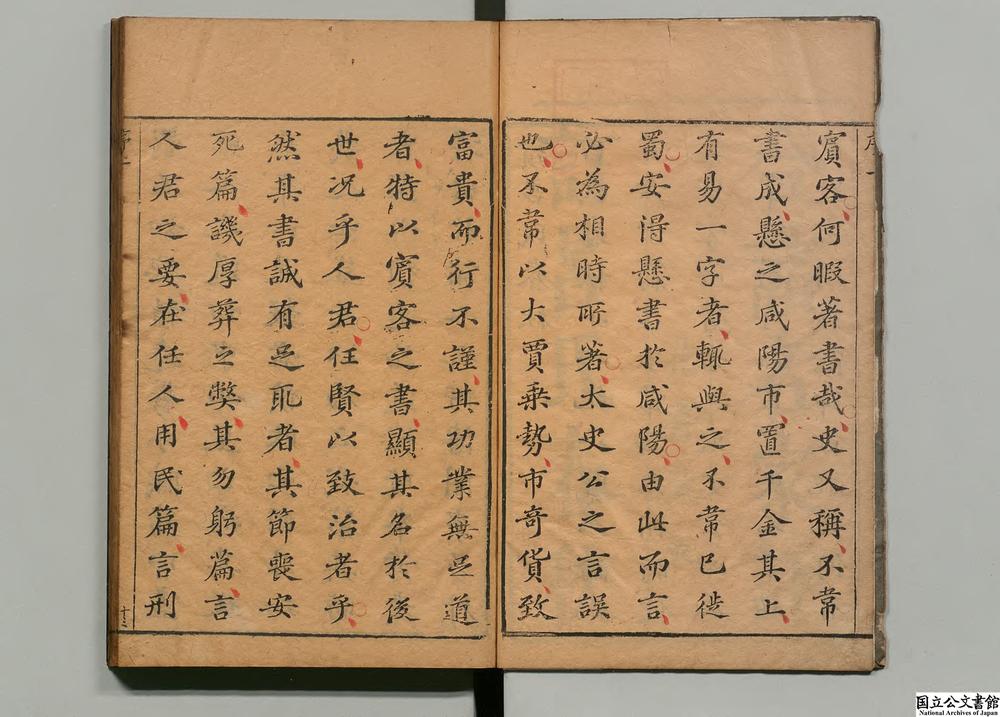 賓客何暇著書哉史又稱不常
書成懸之咸陽市置千金其上
有易一字者輒與之不常已徙
蜀安得懸書於咸陽由此而言
必為相時所著太史公之言誤
也不常以大賈乗勢市奇貨致
富貴而行不謹其功業無足道
者特以賓客之書顯其名於後
世况乎人君任賢以致治者乎
然其書誠有足取者其節喪安
死篇譏厚葬之弊其勿躬篇言
人君之要在任人用民篇言刑
序一
十三
国立公文書館
National Archives of Japan